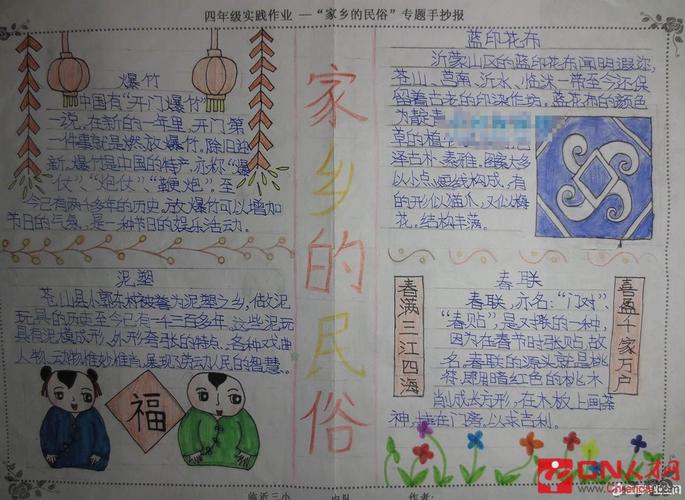 四年级实践作业 — “家乡的民俗”专题手抄报
家乡的民俗
爆竹
中国有“开门爆竹”
一说，在新的一年里，开门第
一件事就是燃放爆竹，除旧迎
新。爆竹是中国的特产，亦称“爆
仗”“炮仗”“鞭炮”，至
今已有两千多年的历史。放爆竹可以增加
节日的气氛，是一种节日的娱乐活动。
蓝印花布
沂蒙山区的蓝印花布闻名遐迩，
苍山、莒南、沂水、临沭一带至今还保
留着古老的印染作坊，蓝花布的颜色
为靛青
草的植
泽古朴、素雅，图案大多
以小点、短线构成，有
的形似猫爪，又似梅
花，结构丰满。
泥塑
苍山县小郭东村被誉为泥塑之乡，做泥
玩具的历史至今已有一千三百多年，这些泥玩
具有泥模成形、外形夸张的特点，各种戏曲
人物、动物惟妙惟肖，展现了劳动人民的智慧。
福
春联
春联，亦名：“门对”
“春贴”，是对联的一种，
因为在春节时张贴，故
名。春联的源头就是桃
符，即用暗红色的桃木
削成长方形，在木板上画茶
神，挂在门旁，以求吉利。
春满三江四海
喜盈千家万户
临沂三小 中队 作者：
CN人才网